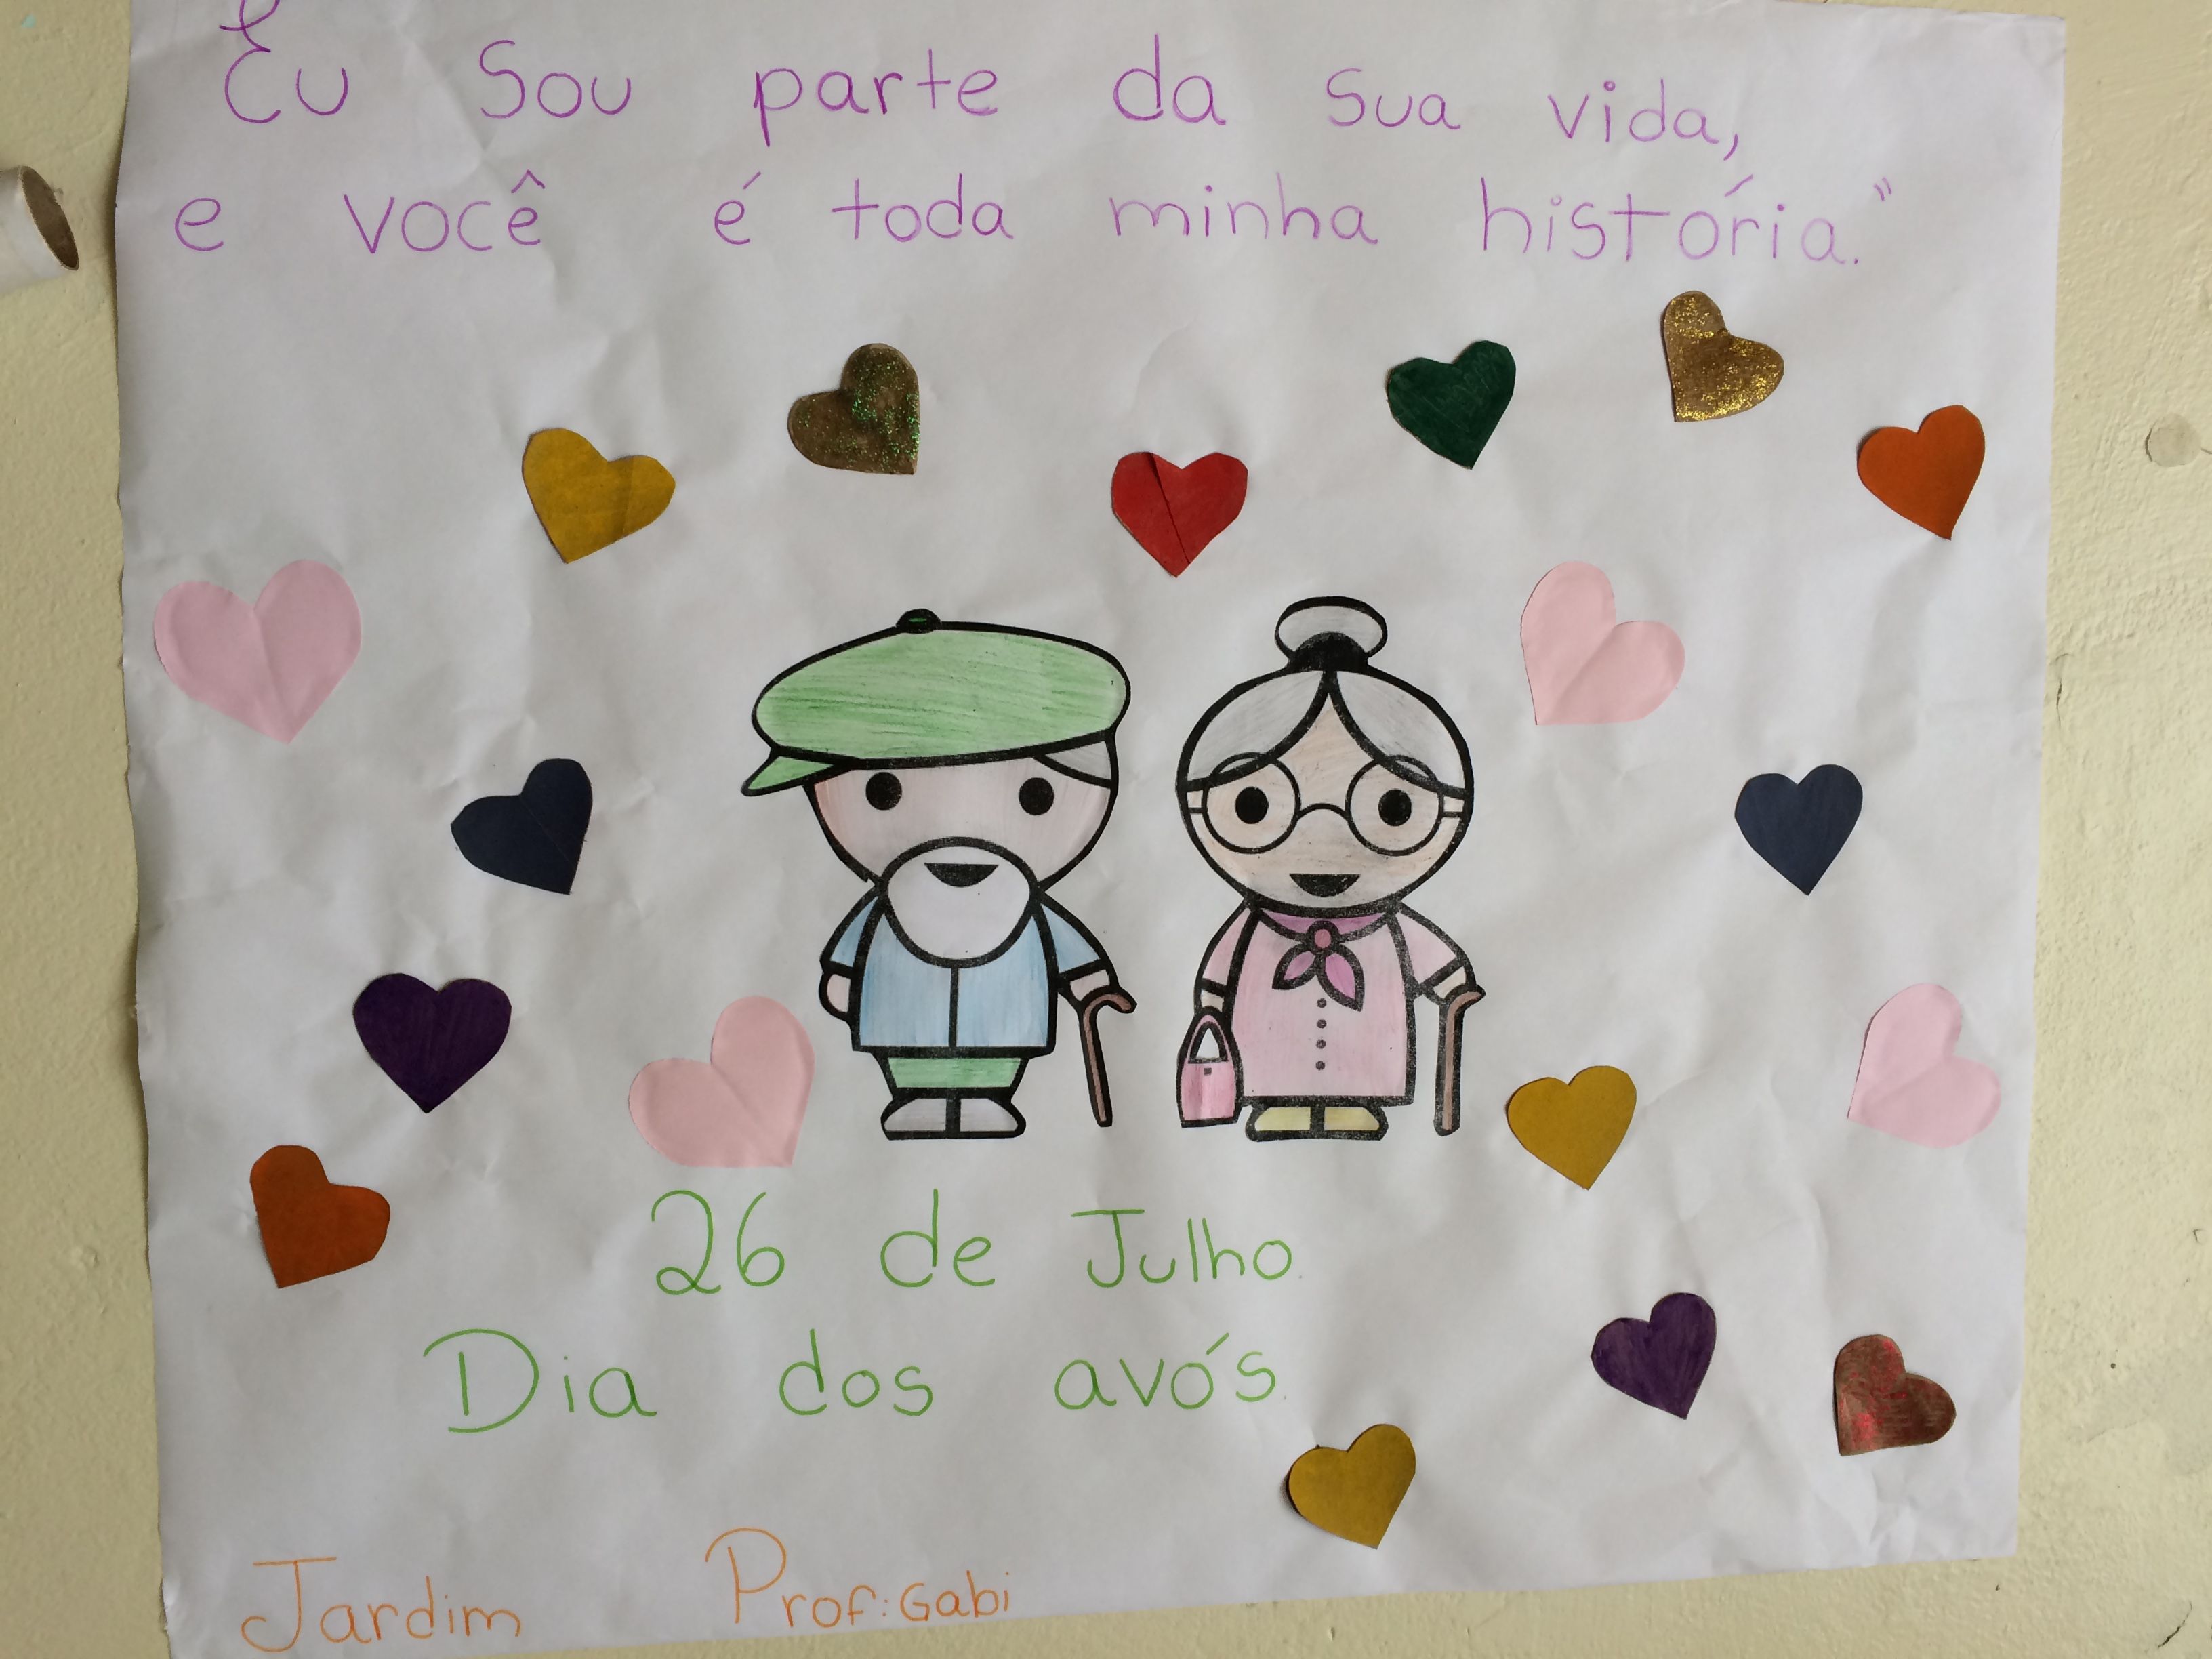 Eu Sou parte da sua vida,
e você é toda minha história."
26 de Julho
Dia dos avós
Jardim Prof: Gabi